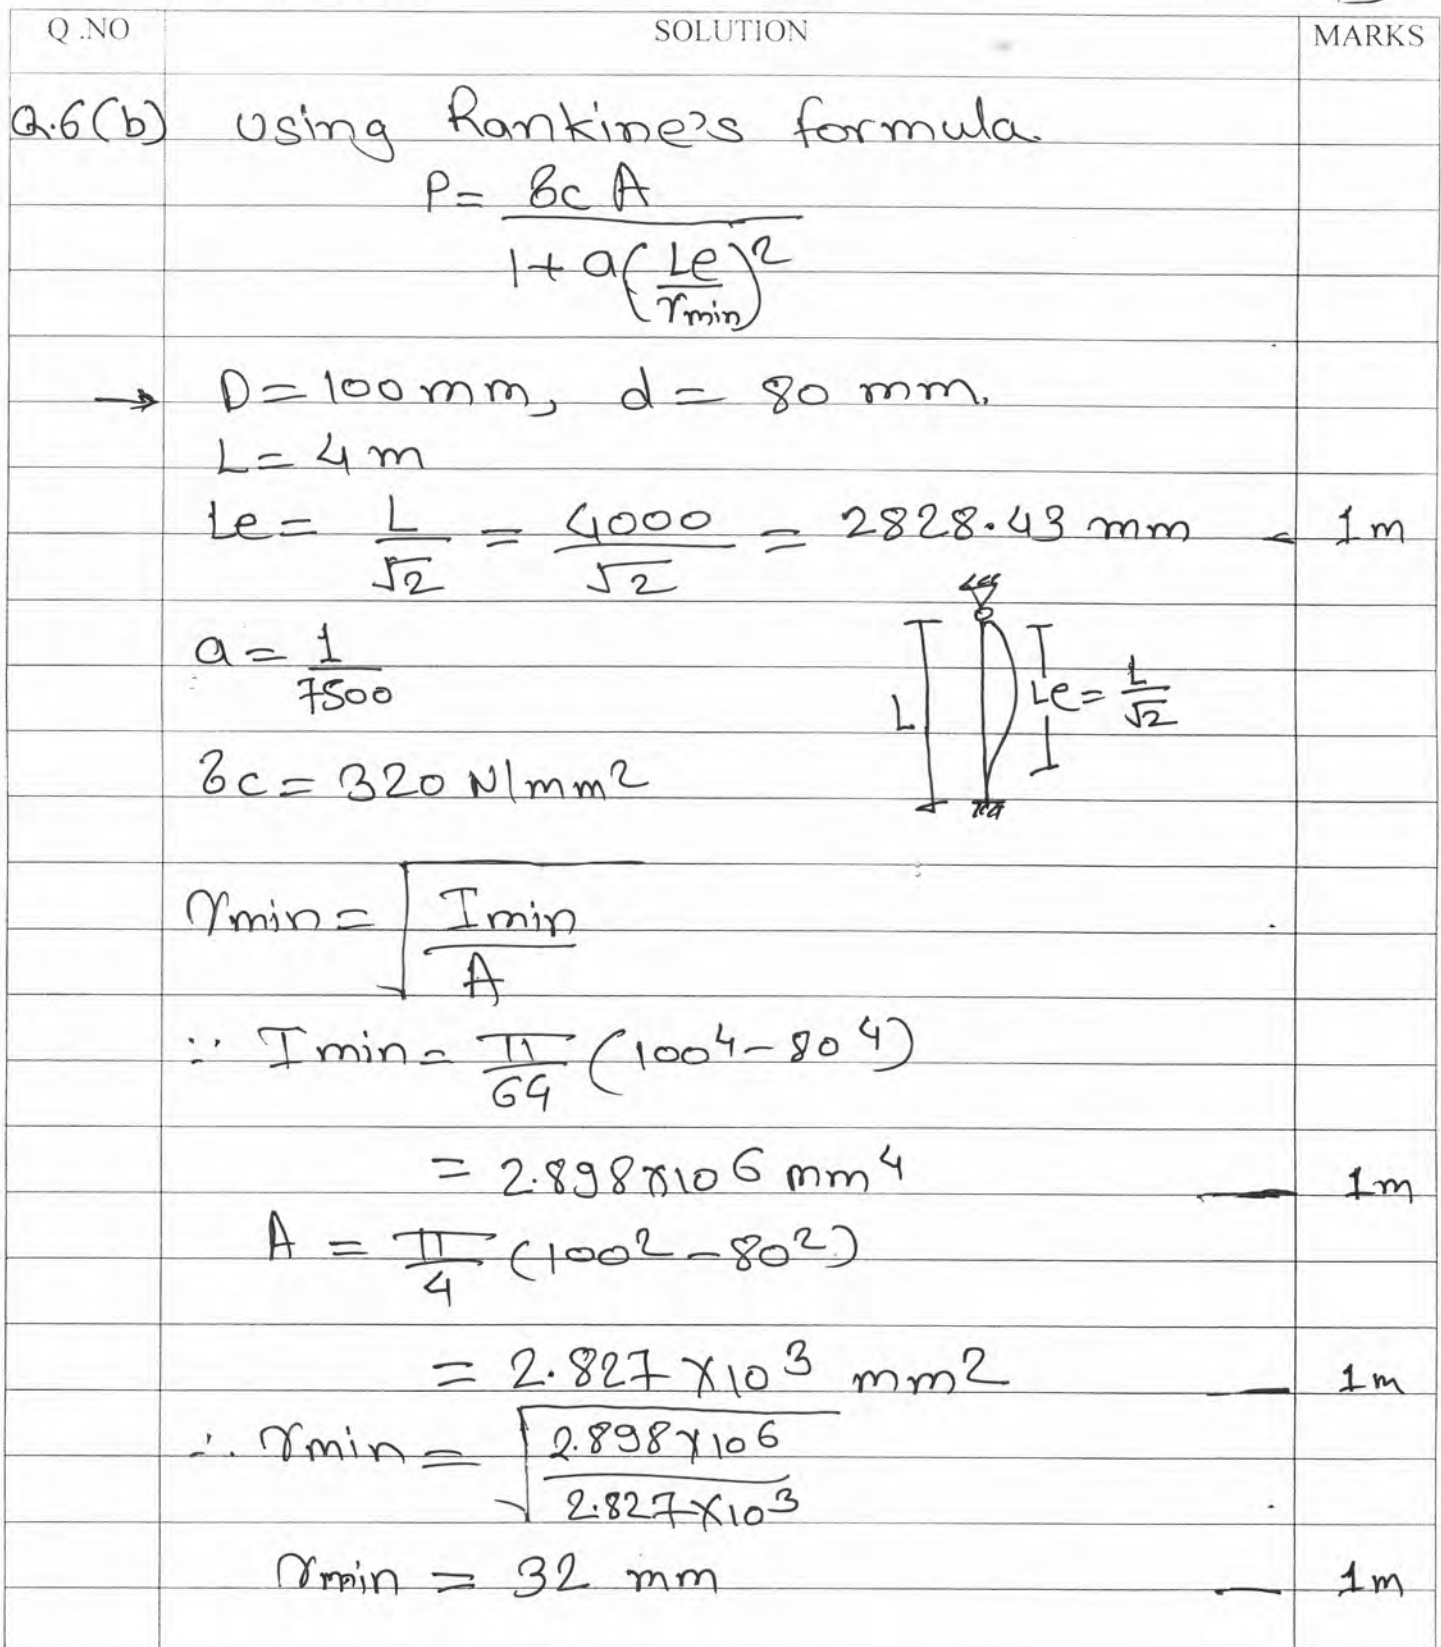 Q.NO SOLUTION MARKS
Q.6(b) Using Rankine's formula.
P = σc A / 1 + a(Le / rmin)²
→ D = 100 mm, d = 80 mm.
L = 4 m
Le = L/√2 = 4000/√2 = 2828.43 mm - 1m
a = 1/7500
L Le = L/√2
σc = 320 N/mm²
rmin = √(Imin / A)
∵ Imin = π/64 (100⁴ - 80⁴)
= 2.898×10⁶ mm⁴ — 1m
A = π/4 (100² - 80²)
= 2.827 × 10³ mm² — 1m
∴ rmin = √(2.898×10⁶ / 2.827×10³)
rmin = 32 mm — 1m